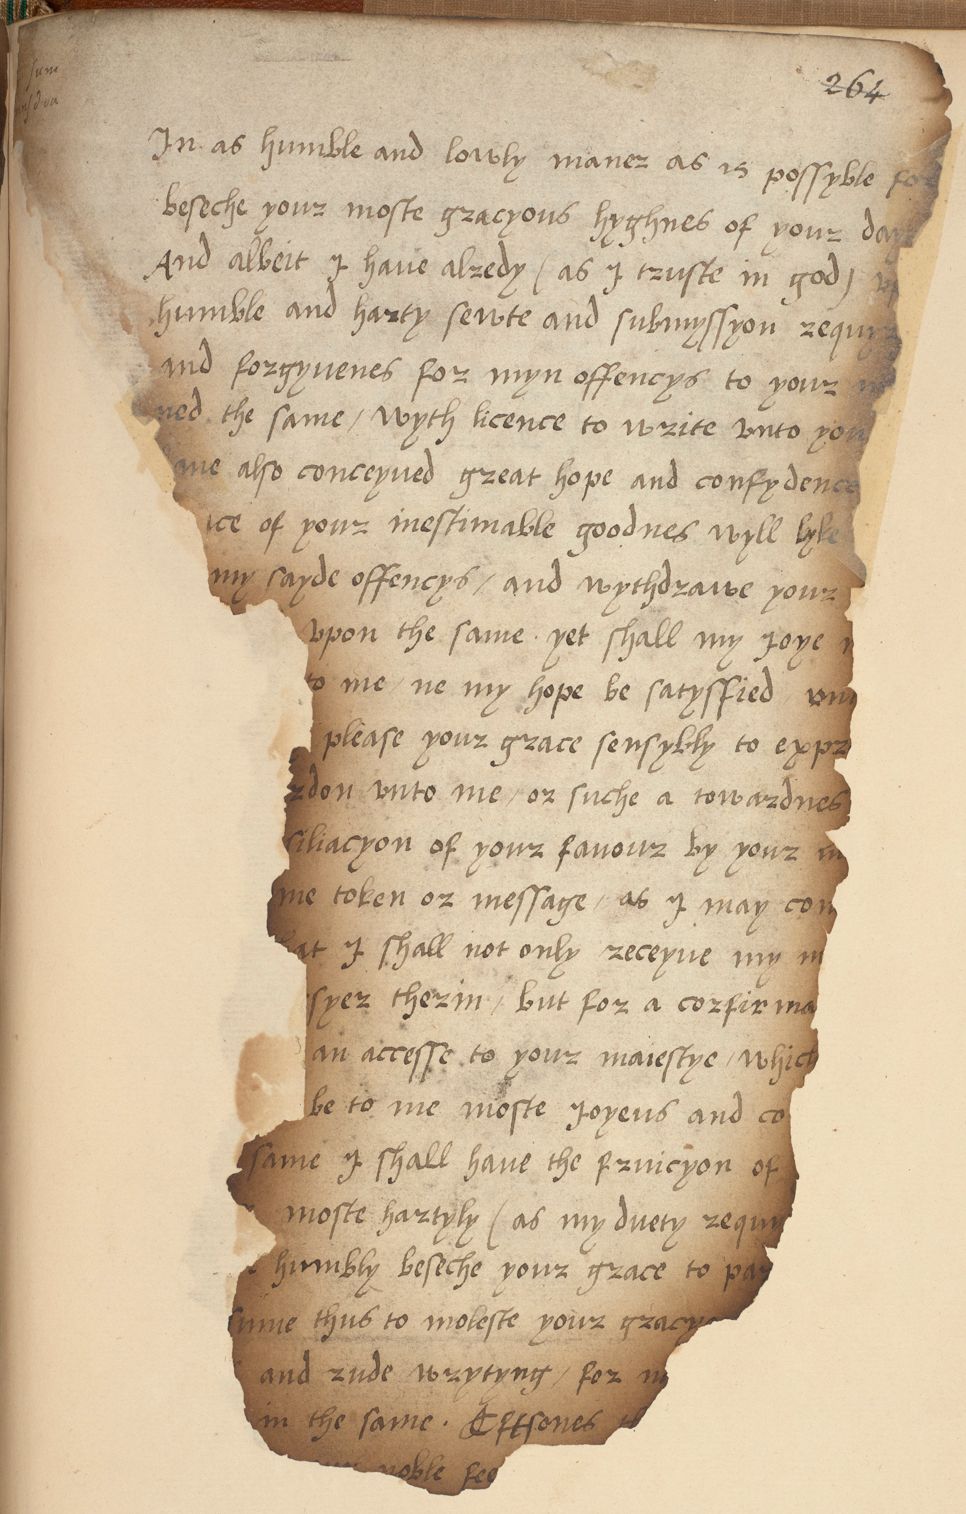 264
In as humble and lowly maner as is possyble for
beseche your moste gracyous hyghnes of your day
And albeit I haue alredy (as I truste in god) vp
humble and harty sewte and submyssyon requyr
and forgyuenes for myn offencys to your
ned the same / wyth licence to write vnto you
aue also conceyued great hope and confydence
ice of your inestimable goodnes wyll lyke
my sayde offencys / and wythdrawe your
vpon the same . yet shall my Ioye
to me / ne my hope be satysfied
please your grace sensybly to expr
rdon vnto me / or suche a towardnes
siliacyon of your fauour by your
me token or message / as I may con
hat I shall not only receyue my
syer therin / but for a corfirma
an accesse to your maiestye / which
be to me moste Ioyeus and co
same I shall haue the fruicyon of
moste hartyly (as my duety requy
humbly beseche your grace to par
sume thus to moleste your gracyo
and rude wrytyng / for
in the same . Eftsones th
noble fee